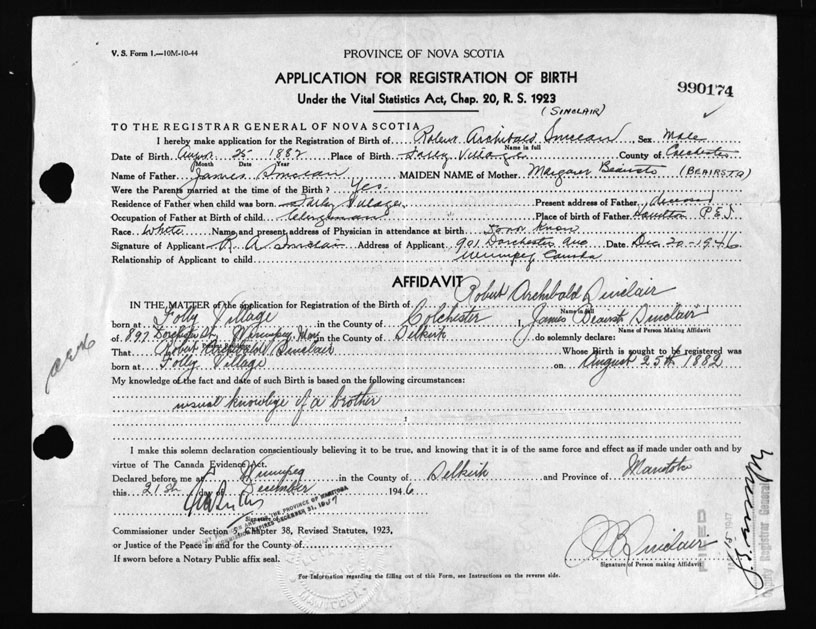 V. S. Form 1.—10M-10-44
PROVINCE OF NOVA SCOTIA
APPLICATION FOR REGISTRATION OF BIRTH
990174
Under the Vital Statistics Act, Chap. 20, R. S. 1923
(SINCLAIR)
TO THE REGISTRAR GENERAL OF NOVA SCOTIA
I hereby make application for the Registration of Birth of Robert Archibald Sinclair Sex Male
Name in full
Date of Birth August 25 1882 Place of Birth Folly Village County of Colchester
Month Date Year
Name of Father James Sinclair MAIDEN NAME of Mother Margaret Beairsto (BEAIRSTO)
Were the Parents married at the time of the Birth? Yes.
Residence of Father when child was born Folly Village Present address of Father
Occupation of Father at Birth of child Clergyman Place of birth of Father Hamilton P.E.I.
Race White Name and present address of Physician in attendance at birth know
Signature of Applicant R. A. Sinclair Address of Applicant 901 Dorchester Ave Date Dec 20-1946
Relationship of Applicant to child Winnipeg Canada
AFFIDAVIT
IN THE MATTER of the application for Registration of the Birth of Robert Archibald Sinclair
Name in full
born at Folly Village in the County of Colchester I, James Beairsto Sinclair
Name of Person making Affidavit
of 897 Dorchester Ave, Winnipeg, Man in the County of Selkirk do solemnly declare:
That Robert Archibald Sinclair Whose Birth is sought to be registered was
born at Folly Village on August 25th 1882
My knowledge of the fact and date of such Birth is based on the following circumstances:
usual knowledge of a brother
I make this solemn declaration conscientiously believing it to be true, and knowing that it is of the same force and effect as if made under oath and by
virtue of The Canada Evidence Act.
Declared before me at Winnipeg in the County of Selkirk and Province of Manitoba
this 21st day of December 1946
Commissioner under Section 5 Chapter 38, Revised Statutes, 1923,
or Justice of the Peace in and for the County of
If sworn before a Notary Public affix seal.
J B Sinclair
Signature of Person making Affidavit
For Information regarding the filling out of this Form, see Instructions on the reverse side.
FILED
15 1947
Deputy Registrar General